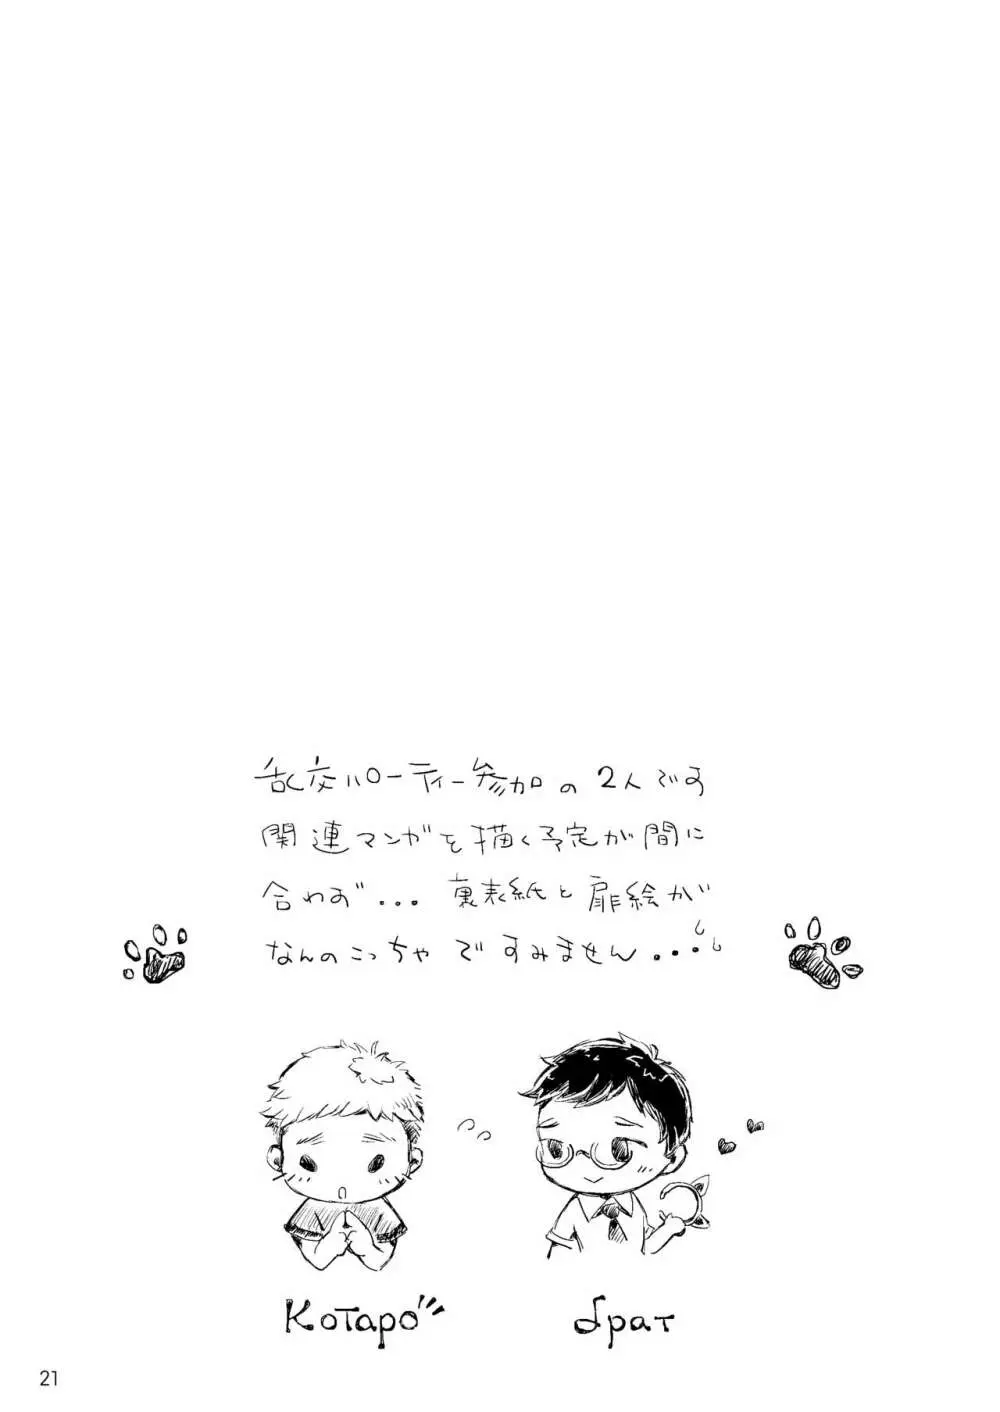 乱交パーティー参加の2人です
関連マンガを描く予定が間に
合わず... 裏表紙と扉絵が
なんのこっちゃですみません...
Котаро
брат
21